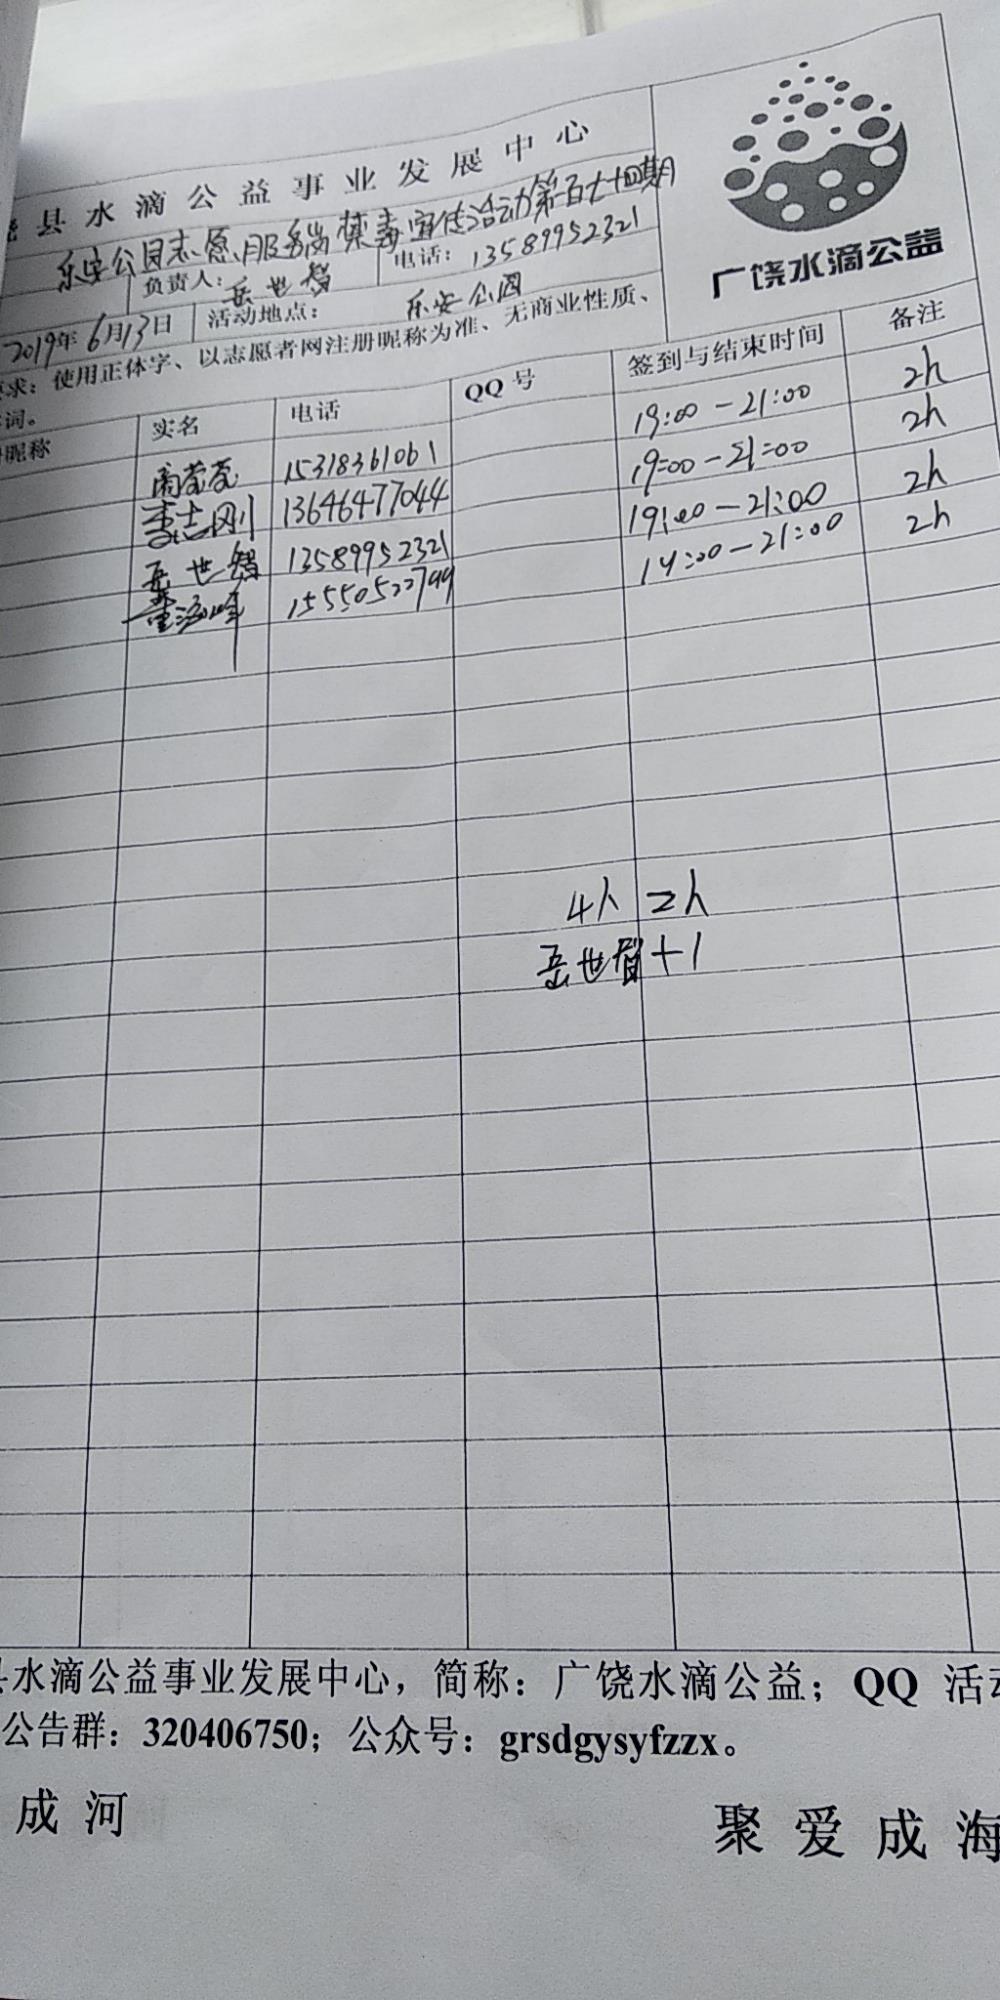 县水滴公益事业发展中心
乐安公园志愿服务岗禁毒宣传活动第百七十四期
广饶水滴公益
负责人：岳世智 电话：13589952321
2019年6月13日 活动地点：乐安公园
求：使用正体字、以志愿者网注册昵称为准、无商业性质、
词。
昵称 实名 电话 QQ号 签到与结束时间 备注
15318361061 19:00-21:00 2h
李志刚 13646477044 19:00-21:00 2h
岳世智 13589952321 19:00-21:00 2h
董海峰 19:00-21:00 2h
4人 2h
岳世智+1
水滴公益事业发展中心，简称：广饶水滴公益；QQ 活
公告群：320406750；公众号：grsdgysyfzzx。
成河 聚爱成海